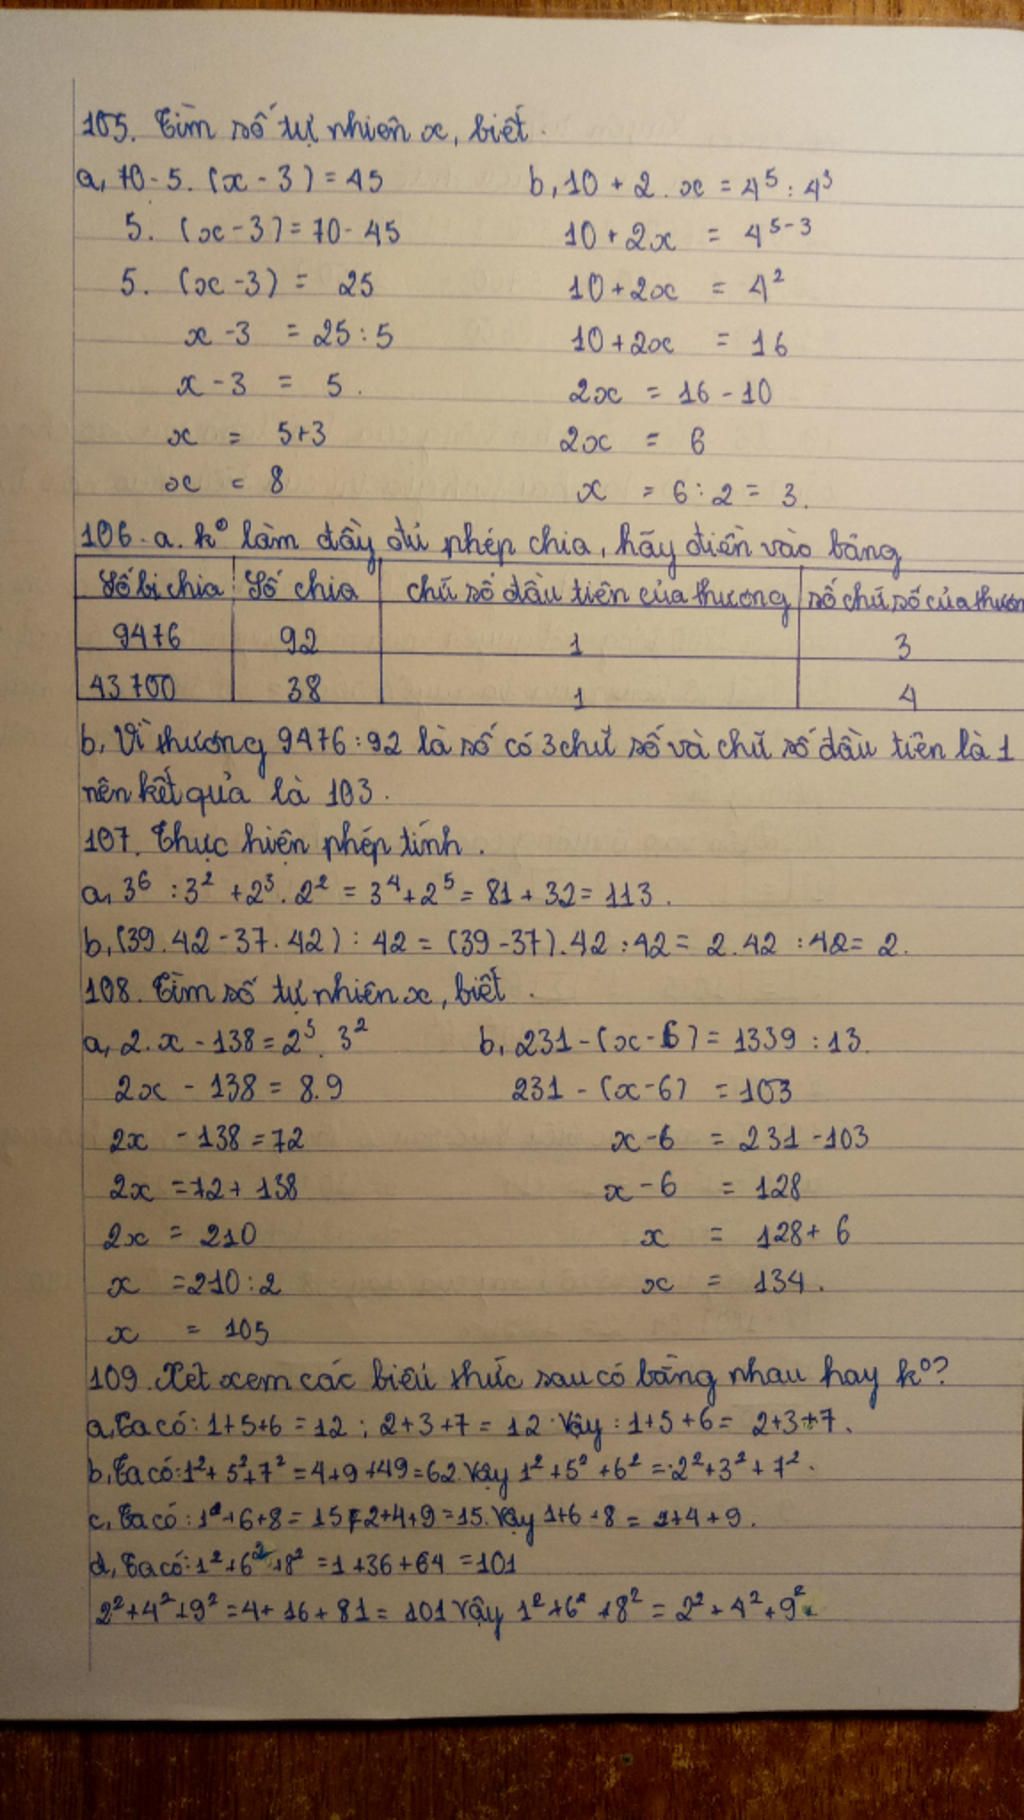 105. Tìm số tự nhiên x, biết.
a, 70 - 5. (x - 3) = 45 b, 10 + 2. x = 4⁵ : 4³
5. (x - 3) = 70 - 45 10 + 2x = 4⁵⁻³
5. (x - 3) = 25 10 + 2x = 4²
x - 3 = 25 : 5 10 + 2x = 16
x - 3 = 5. 2x = 16 - 10
x = 5 + 3 2x = 6
x = 8 x = 6 : 2 = 3.
106. a. k⁰ làm đầy đủ phép chia, hãy điền vào bảng
Số bị chia Số chia chữ số đầu tiên của thương số chữ số của thươn
9476 92 1 3
43700 38 1 4
b, Vì thương 9476 : 92 là số có 3 chữ số và chữ số đầu tiên là 1
nên kết quả là 103.
107. Thực hiện phép tính.
a, 3⁶ : 3² + 2³. 2² = 3⁴ + 2⁵ = 81 + 32 = 113.
b, (39. 42 - 37. 42) : 42 = (39 - 37). 42 : 42 = 2. 42 : 42 = 2.
108. Tìm số tự nhiên x, biết.
a, 2. x - 138 = 2³. 3² b, 231 - (x - 6) = 1339 : 13.
2x - 138 = 8. 9 231 - (x - 6) = 103
2x - 138 = 72 x - 6 = 231 - 103
2x = 72 + 138 x - 6 = 128
2x = 210 x = 128 + 6
x = 210 : 2 x = 134.
x = 105
109. Xét xem các biểu thức sau có bằng nhau hay k⁰?
a, Ta có : 1 + 5 + 6 = 12 ; 2 + 3 + 7 = 12. Vậy : 1 + 5 + 6 = 2 + 3 + 7.
b, Ta có : 1² + 5² + 7² = 4 + 9 + 49 = 62. Vậy 1² + 5² + 6² = 2² + 3² + 7².
c, Ta có : 1² + 6 + 8 = 15 ; 2 + 4 + 9 = 15. Vậy 1 + 6 + 8 = 2 + 4 + 9.
d, Ta có : 1² + 6² + 8² = 1 + 36 + 64 = 101
2² + 4² + 9² = 4 + 16 + 81 = 101 Vậy 1² + 6² + 8² = 2² + 4² + 9².